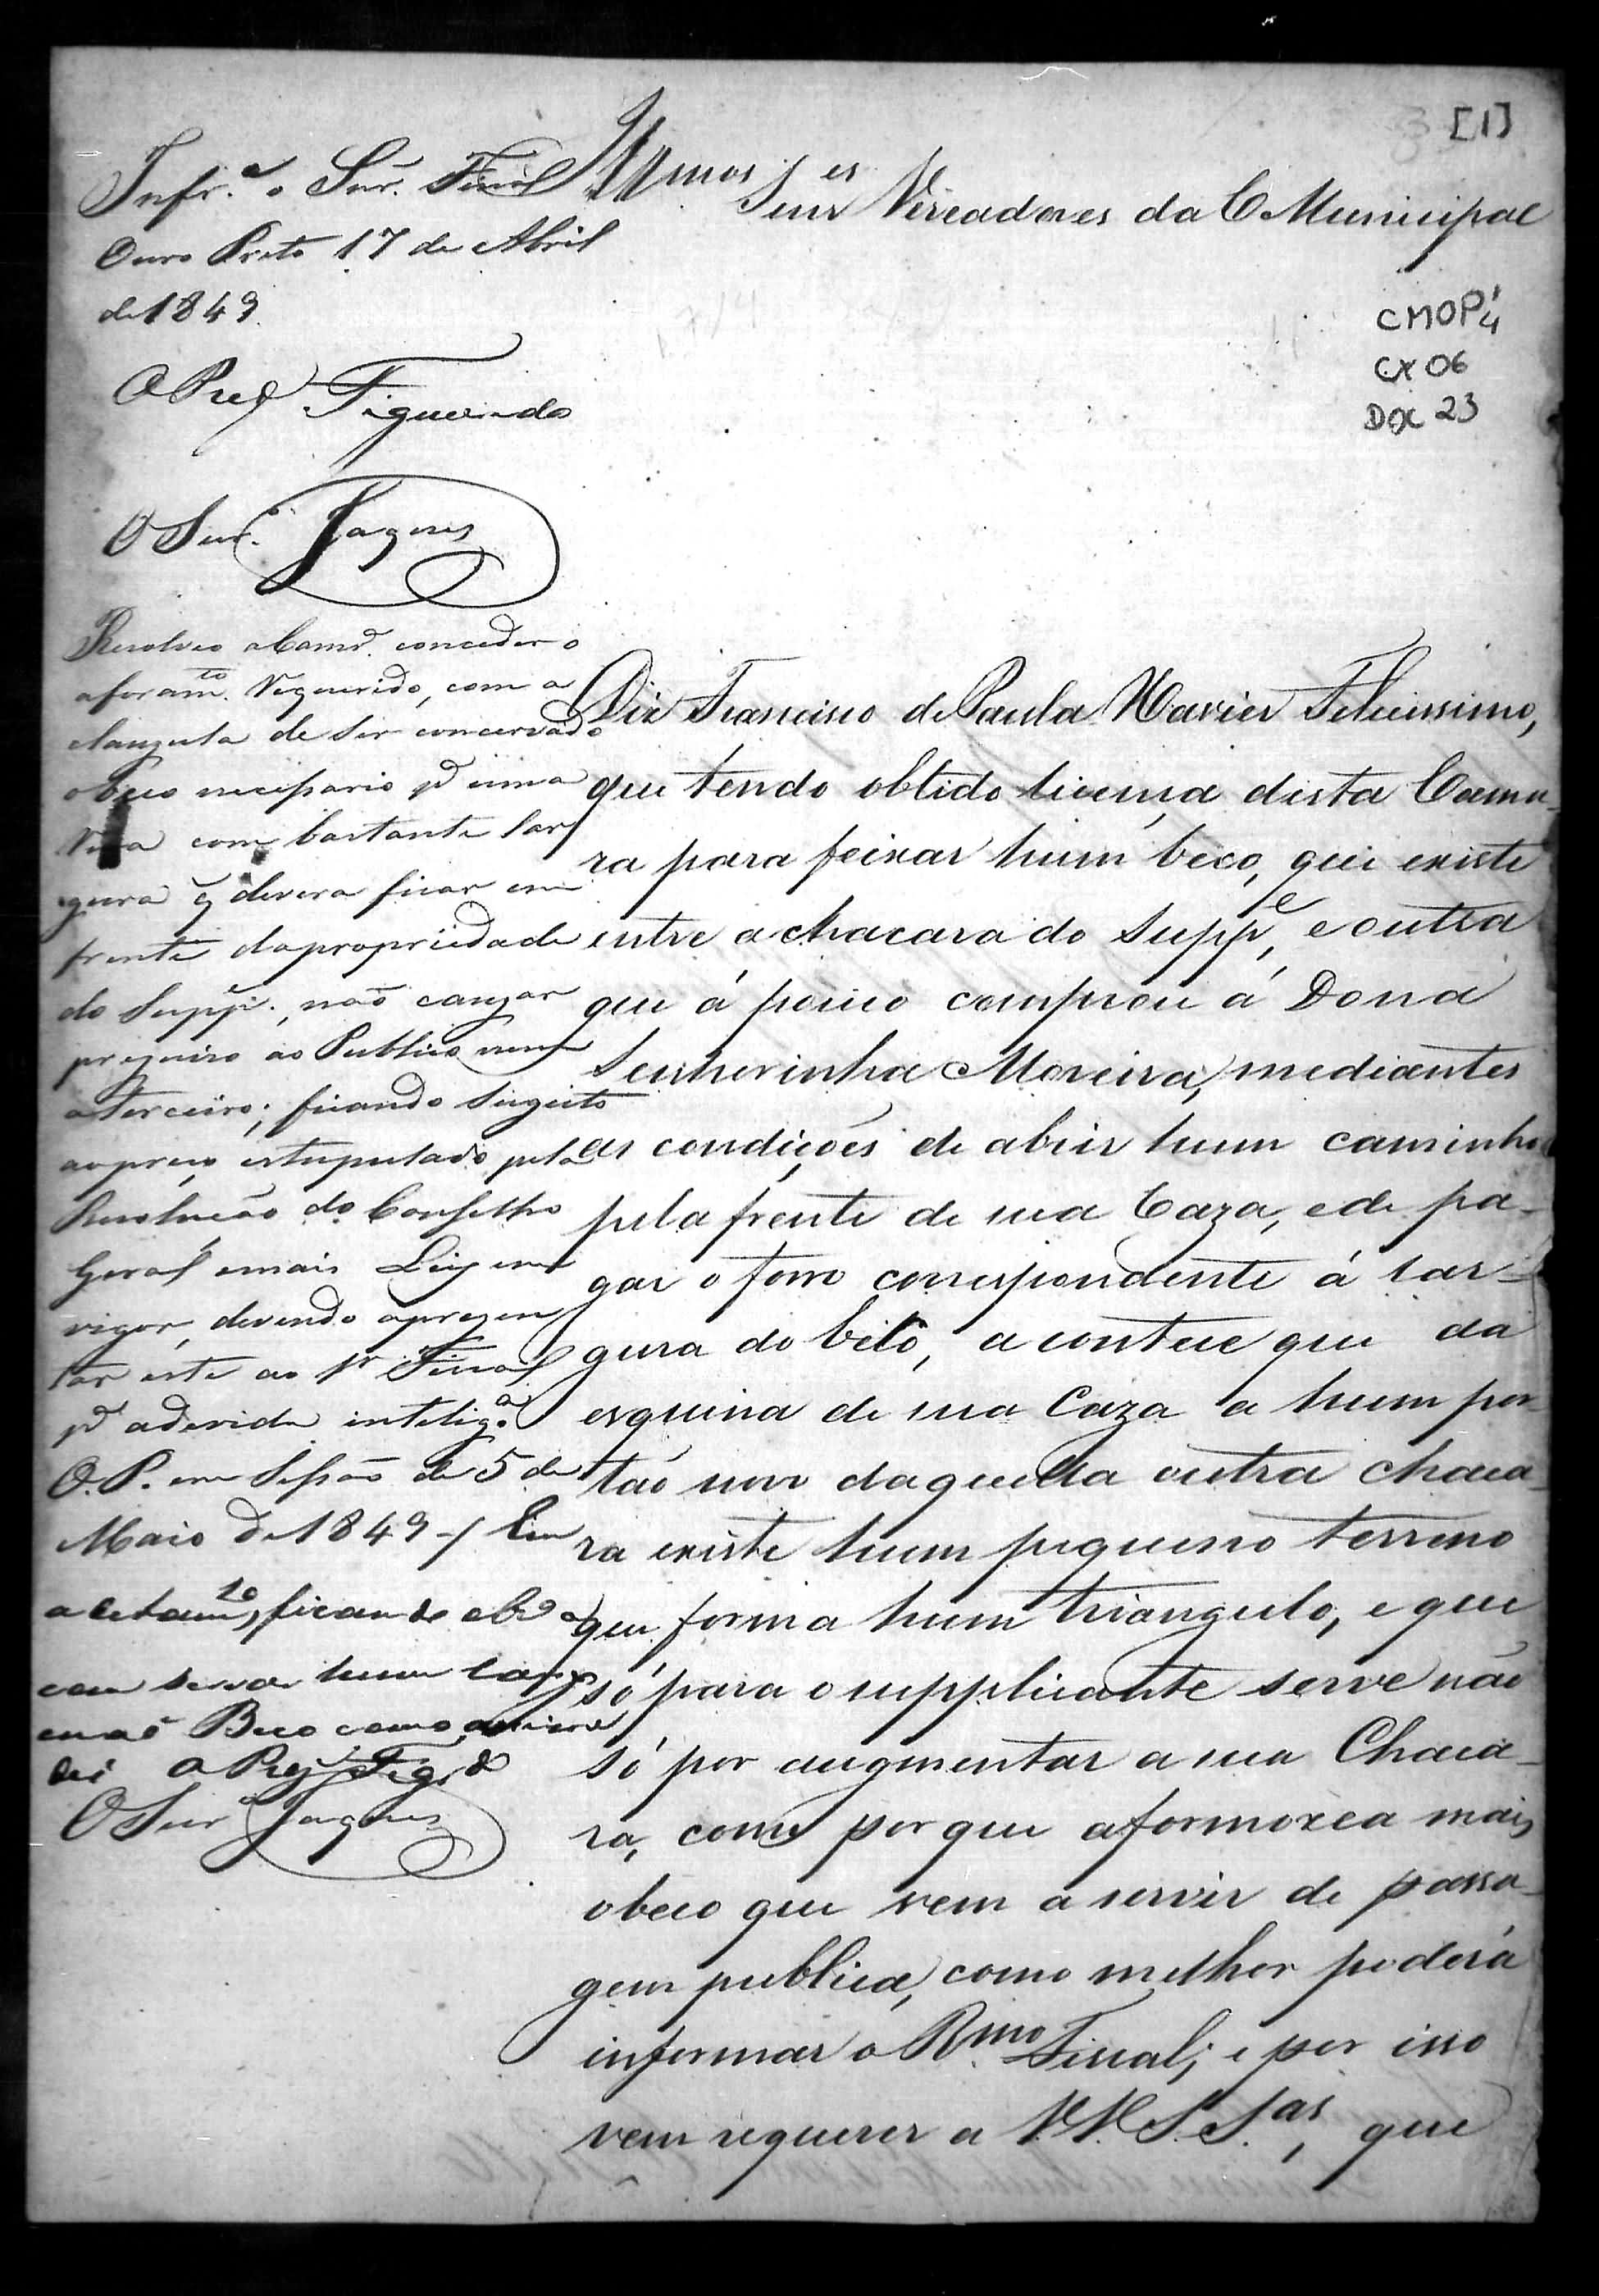 [1]
Infr.e o Snr. Fiscal
Ouro Preto 17 de Abril
de 1849.
O Prez Figueiredo
O Secr. Jaques
Illmos Snres Vereadores da C Municipal
CMOP 1/4
CX 06
DOC 23
Resolveo a Camr.a conceder o
aforam.to requerido, com a
clauzula de ser concervado
o beco necessario p.a uma
Via com bastante lar
gura q̃ devera ficar em
frente da propriedade
do Supp.e, não cauzar
prejuizo ao Publico nem
a terceiro; ficando sugeito
ao preço estupulado pela
Resolução do Conselho
Geral e mais Leiz em
vigor, devendo aprezen
tar este ao Fiscal
p.a a devida intelig.a
O. P. em Sessão de 5 de
Maio de 1849 -/ Em
aditam.to, ficando obr.o a
con servar hum largo
e não Beco como
O Prez Figr.do
O Secr Jaques
Diz Francisco de Paula Xavier Felicissimo,
que tendo obtido licença desta Cama-
ra para feixar hum beco, que existe
entre a chacara do Supp.e, e outra
que á pouco comprou á Dona
Senhorinha Moreira, mediantes
as condições de abrir hum caminho
pela frente de sua Caza, e de pa-
gar o foro correspondente á lar-
gura do beco, a contece que da
esquina de sua Caza a hum por-
tão novo daquella outra chaca-
ra existe hum piqueno terreno
que forma hum triangulo, e que
só para o supplicante serve não
só por augmentar a sua Chaca-
ra, como por que aformozea mais
o beco que vem a servir de passa-
gem publica, como melhor poderá
informar o Rmo Fiscal; e por isso
vem requerer a V.V. S.S.as, que